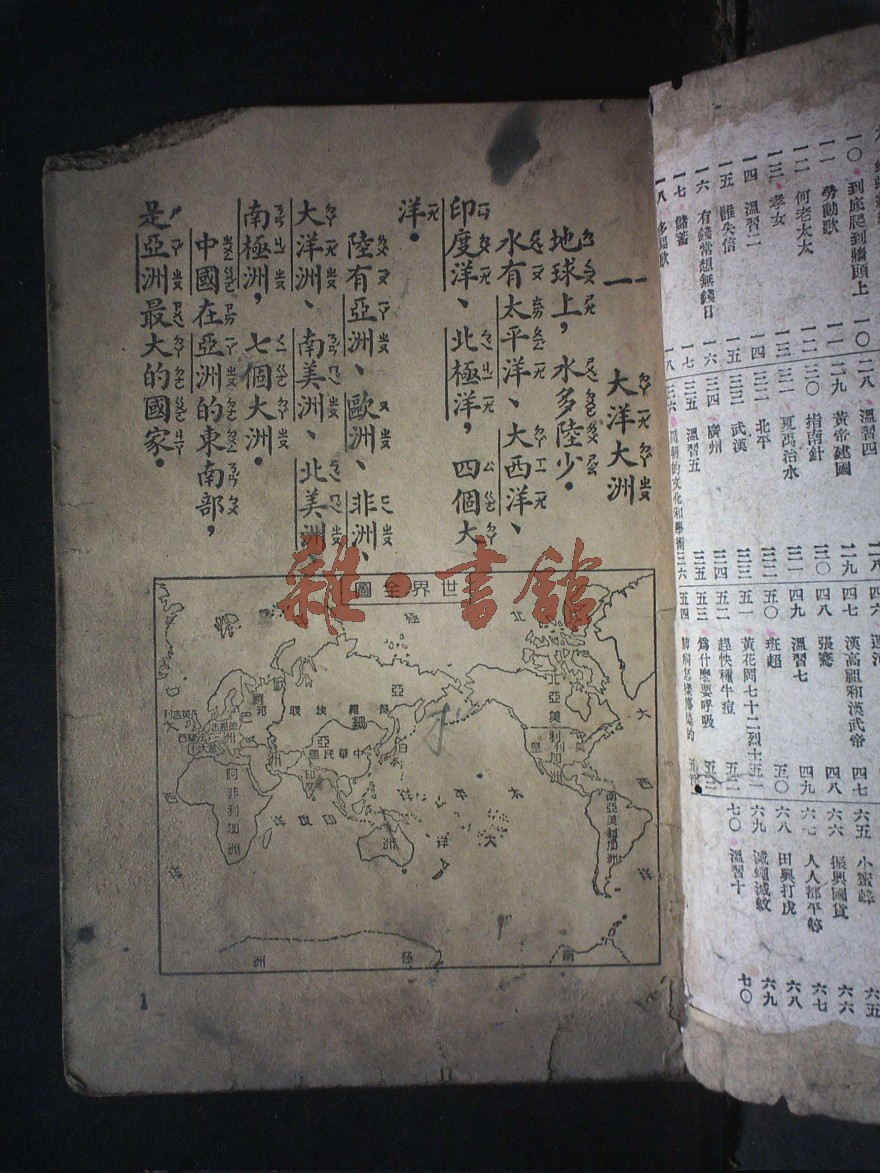 一〇 到底爬到牆頭上 一〇
一一 勞動歌 一一
一二 何老太太 一二
一三 孝女 一三
一四 溫習二 一四
一五 誰失信 一五
一六 有錢常想無錢日 一六
一七 儲蓄 一七
一八
二八 溫習四 二八
二九 黃帝建國 二九
三〇 指南針 三〇
三一 夏禹治水 三一
三二 北平 三二
三三 武漢 三三
三四 廣州 三四
三五 溫習五 三五
三六 的文化和學術 三六
四六 運河
四七 漢高祖和漢武帝 四七
四八 張騫 四八
四九 溫習七 四九
五〇 班超 五〇
五一 黃花岡七十二烈士 五一
五二 趕快種牛痘 五二
五三 爲什麼要呼吸 五三
五四
小蜜蜂 六五
六五
六六 振興國貨 六六
六七 人人都平等 六七
六八 田興打虎 六八
六九 滅蠅滅蚊 六九
七〇 溫習十 七〇
一 大洋大洲
地球上，水多陸少。
水有太平洋、大西洋、
印度洋、北極洋，四個大
洋。
陸有亞洲、歐洲、非洲、
大洋洲、南美洲、北美洲、
南極洲，七個大洲。
中國在亞洲的東南部，
是亞洲最大的國家。
世界全圖
北極
亞洲
歐羅巴洲
蘇維埃聯
中華民國
日本
印度
阿非利加洲
北亞美利加洲
南亞美利加洲
太平洋
大西洋
印度洋
大洋洲
南極洲
英吉利
1
雜·書館